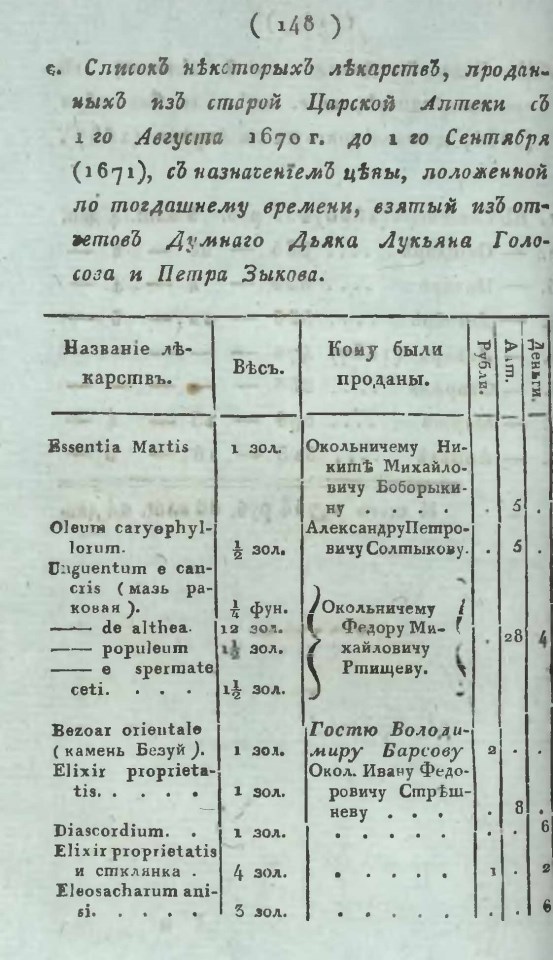 ( 148 )
є. Списокъ нѣкоторыхъ лѣкарствъ, продан-
ныхъ изъ старой Царской Аптеки съ
1 го Августа 1670 г. до 1 го Сентября
(1671), съ назначенїемъ цѣны, положенной
по тогдашнему времени, взятый изъ от-
вѣтовъ Думнаго Дьяка Лукьяна Голо-
соза и Петра Зыкова.
Названіе лѣ-
карствъ. Вѣсъ. Кому были
проданы. Рубли. Алт. Деньги.
Essentia Martis 1 зол. Окольничему Ни-
китѣ Михайло-
вичу Боборыки-
ну . . . . . 5 .
Oleum caryophyl- Александру Петро-
lorum. ½ зол. вичу Солтыкову. . 5 .
Unguentum e can-
cris ( мазь ра-
ковая ). ¼ фун. Окольничему
—— de althea. 12 зол. Федору Ми- . 28 4
—— populeum 1½ зол. хайловичу
—— e spermate Ртищеву.
ceti. . . . 1½ зол.
Bezoar orientale Гостю Володи-
( камень Безуй ). 1 зол. миру Барсову 2 . .
Elixir proprieta- Окол. Ивану Федо-
tis. . . . . 1 зол. ровичу Стрѣш-
неву . . . . 8 .
Diascordium. . 1 зол. . . . . . . . 6
Elixir proprietatis
и стклянка . 4 зол. . . . . . 1 . 2
Eleosacharum ani-
si. . . . . 3 зол. . . . . . . . 6